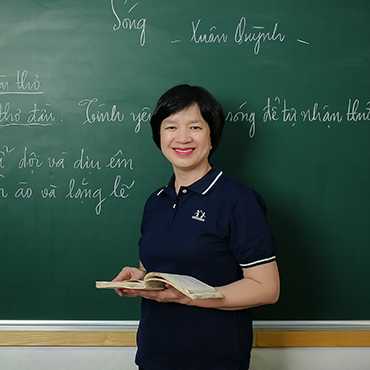 Sóng
_ Xuân Quỳnh _
thơ
thơ đầu : Tình yê sóng để tự nhận thứ
ữ dội và dịu êm
n ào và lặng lẽ